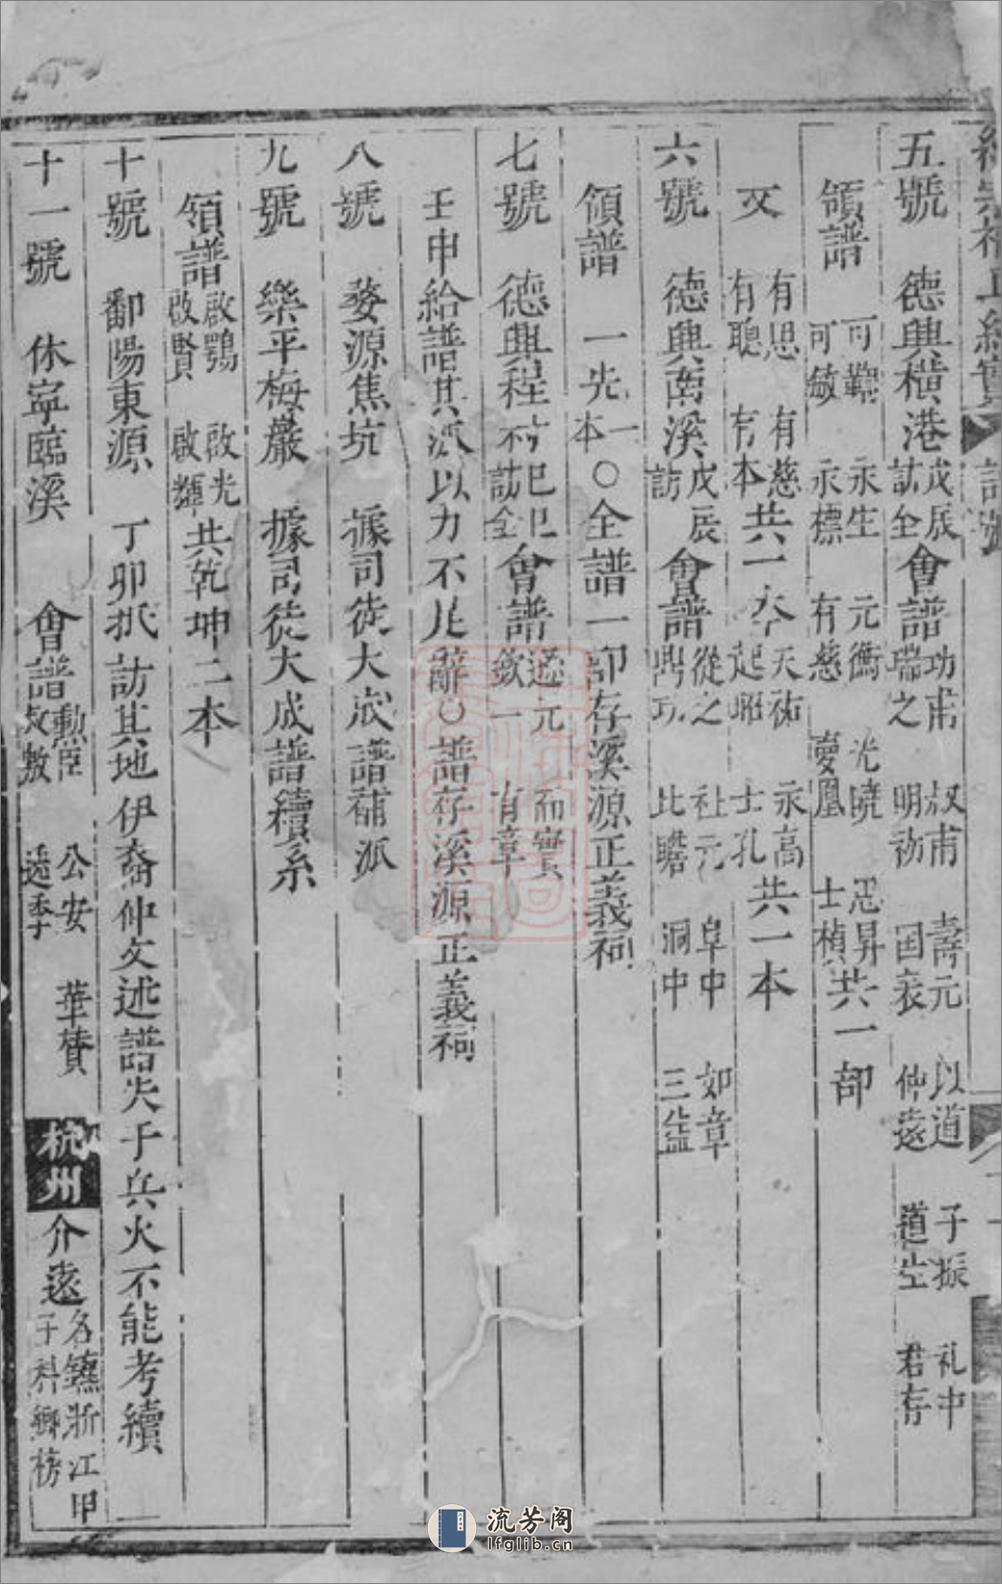 五號 德興橫港 戊辰訪全 會譜 功甫 瑞之 叔甫 明初 壽元 因表 以道 仲遠 子振 道生 礼中 君存
領譜 可 可敬 永生 永標 元衡 有慈 光曉 夢鳳 思昇 士楨 共一部
又 有思 有聰 有慈 有本 共一本 天祐 起昭 永高 士孔 共一本
六號 德興萬溪 戊辰訪 會譜 從之 鼎功 社元 比瞻 阜中 洞中 如章 三益
領譜 一先一本○全譜一部存溪源正義祠
七號 德興程 己巳訪全 會譜 通元 欽一 而實 有章
壬申給譜其派以力不足辭○譜存溪源正義祠
八號 婺源焦坑 據司徒大成譜補派
九號 樂平梅巖 據司徒大成譜續系
領譜 啟鶚 啟賢 啟光 啟輝 共乾坤二本
十號 鄱陽東源 丁卯抵訪其地伊裔仲文述譜失于兵火不能考續
十一號 休寧臨溪 會譜 勳臣 文敷 公安 遜季 華贊 杭州 介遠 名鑣浙江甲子科鄉榜
流芳阁
lfglib.cn